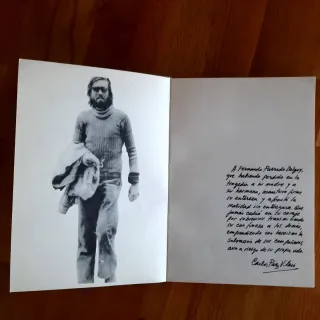 A Fernando Parrado Dolgay,
que habiendo perdido en la
tragedia a su madre y a
su hermana, mantuvo firme
su entereza y afrontó la
realidad sin enterrarse. Que
jamás cedió en su coraje
por sobrevivir transmitiendo
su con fianza a los demás,
emprendiendo con heroísmo la
salvación de sus compañeros
aun a riesgo de su propia vida.
Carlos Páez Vilaró